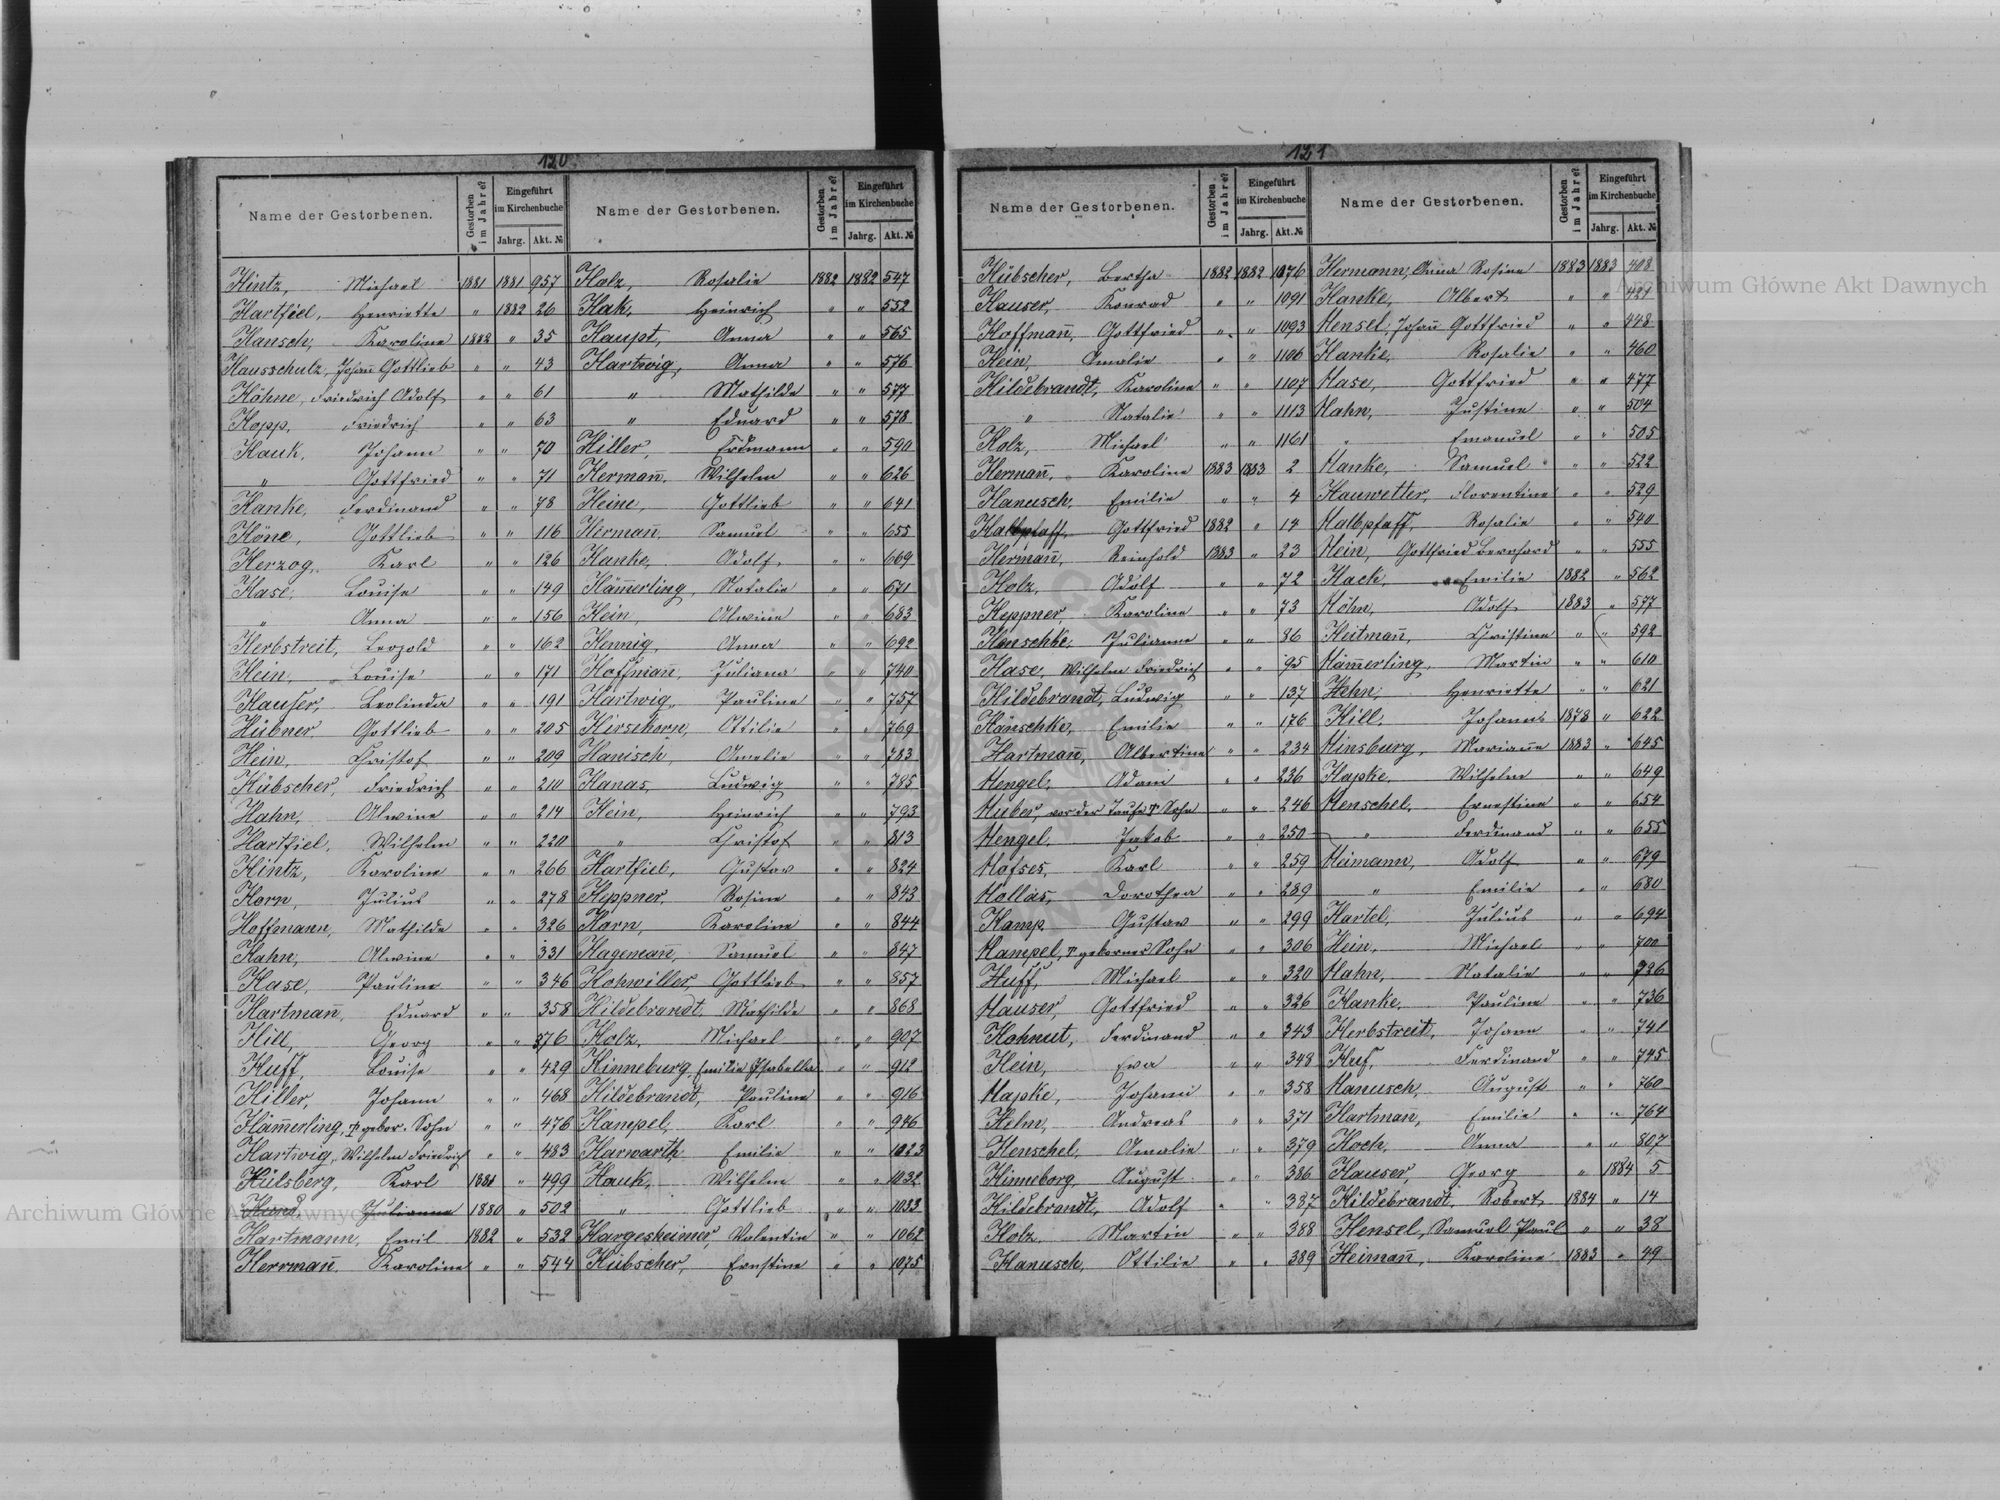 120
Name der Gestorbenen. Gestorben im Jahre? Eingeführt im Kirchenbuche Jahrg. Akt. № Name der Gestorbenen. Gestorben im Jahre? Eingeführt im Kirchenbuche Jahrg. Akt. №
Hintz, Michael 1881 1881 957 Holz, Rosalie 1882 1882 547
Hartfiel, Henriette " 1882 26 Hak, Heinrich " " 552
Hansch, Karoline 1882 " 35 Haupt, Anna " " 565
Hausschulz, Johañ Gottlieb " " 43 Hartwig, Anna " " 576
Höhne, Friedrich Adolf " " 61 " Mathilde " " 577
Hopp, Friedrich " " 63 " Eduard " " 578
Hauk, Johann " " 70 Hiller, Erdmann " " 590
" Gottfried " " 71 Hermañ, Wilhelm " " 626
Hanke, Ferdinand " " 78 Heine, Gottlieb " " 641
Höne, Gottlieb " " 116 Hermañ, Samuel " " 655
Herzog, Karl " " 126 Hanke, Adolf " " 669
Hase, Louise " " 149 Häm̄erling, Natalie " " 671
" Anna " " 156 Hein, Alwine " " 683
Herbstreit, Leopold " " 162 Hennig, Anna " " 692
Hein, Louise " " 171 Hoffmañ, Juliana " " 740
Hauser, Leolinda " " 191 Hartwig, Pauline " " 757
Hübner Gottlieb " " 205 Hirsekorn, Ottilie " " 769
Hein, Christof " " 209 Hanisch, Amelie " " 783
Hübscher, Friedrich " " 210 Hanas, Ludwig " " 785
Hahn, Alwine " " 214 Hein, Heinrich " " 793
Hartfiel, Wilhelm " " 220 " Christof " " 813
Hintz, Karoline " " 266 Hartfiel, Gustav " " 824
Horn, Julius " " 278 Heppner, Rosine " " 843
Hoffmann, Mathilde " " 326 Horn, Karoline " " 844
Hahn, Alwine " " 331 Hagemañ, Samuel " " 847
Hase, Pauline " " 346 Hohwiller, Gottlieb " " 857
Hartmañ, Eduard " " 358 Hildebrandt, Mathilde " " 868
Hill, Georg " " 376 Holz, Michael " " 907
Huff, Louise " " 429 Hinneburg, Emilie Isabella " " 912
Hiller, Johann " " 468 Hildebrandt, Pauline " " 916
Häm̄erling, † gebor. Sohn " " 476 Hampel, Karl " " 946
Hartwig, Wilhelm Friedrich " " 483 Harwarth Emilie " " 1023
Hülsberg, Karl 1881 " 499 Hauk, Wilhelm " " 1032
Julianna 1880 " 502 " Gottlieb " " 1033
Hartmann, Emil 1882 " 532 Hargesheimer, Valentin " " 1062
Herrmañ, Karoline " " 544 Hübscher, Ernstine " " 1075
121
Name der Gestorbenen. Gestorben im Jahre? Eingeführt im Kirchenbuche Jahrg. Akt. № Name der Gestorbenen. Gestorben im Jahre? Eingeführt im Kirchenbuche Jahrg. Akt. №
Hübscher, Bertha 1882 1882 1076 Hermann, Anna Rosine 1883 1883 408
Hauser, Konrad " " 1091 Hanke, Albert " " 421
Hoffmañ, Gottfried " " 1093 Hensel, Johañ Gottfried " " 448
Hein, Amalie " " 1106 Hanke, Rosalie " " 460
Hildebrandt, Karoline " " 1107 Hase, Gottfried " " 477
" Natalie " " 1113 Hahn, Justine " " 504
Holz, Michael " " 1161 " Emanuel " " 505
Hermañ, Karoline 1883 1883 2 Hanke, Samuel " " 522
Hanusch, Emilie " " 4 Hauwetter, Florentine " " 529
Halbpfaff, Gottfried 1882 " 14 Halbpfaff, Rosalie " " 540
Hermañ, Reinhold 1883 " 23 Hein, Gottfried Bernhard " " 555
Holz, Adolf " " 72 Hack, Emilie 1882 " 562
Heppner, Karoline " " 73 Höhn, Adolf 1883 " 577
Henschke, Julianne " " 86 Heitmañ, Christine " " 592
Hase, Wilhelm Friedrich " " 95 Häm̄erling, Martin " " 610
Hildebrandt, Ludwig " " 137 Hahn, Henriette " " 621
Hänschke, Emilie " " 176 Hill, Johanns 1878 " 622
Hartmañ, Albertine " " 234 Hinsburg, Mariañe 1883 " 645
Hengel, Adam " " 236 Hapke, Wilhelm " " 649
Huber, vor der Taufe † Sohn " " 246 Henschel, Ernestine " " 654
Hengel, Jakob " " 250 " Ferdinand " " 655
Hofses, Karl " " 259 Heimann, Adolf " " 679
Hollas, Dorothea " " 289 " Emilie " " 680
Hamp, Gustav " " 299 Hartel, Julius " " 694
Hampel, † geborner Sohn " " 306 Hein, Michael " " 700
Huff, Michael " " 320 Hahn, Natalie " " 726
Hauser, Gottfried " " 326 Hanke, Pauline " " 736
Hohnut, Ferdinand " " 343 Herbstreit, Johann " " 741
Hein, Eva " " 348 Huf, Ferdinand " " 745
Hapke, Johann " " 358 Hanusch, August " " 760
Helm, Andreas " " 371 Hartmañ, Emilie " " 764
Henschel, Amalie " " 379 Hoch, Anna " " 807
Hinneborg, August " " 386 Hauser, Georg " 1884 5
Hildebrandt, Adolf " " 387 Hildebrandt, Robert 1884 " 14
Holz, Martin " " 388 Hensel, Samuel Paul " " 38
Hanusch, Ottilie " " 389 Heimañ, Karoline 1883 " 49
Archiwum Główne Akt Dawnych
Archiwum Główne Akt Dawnych